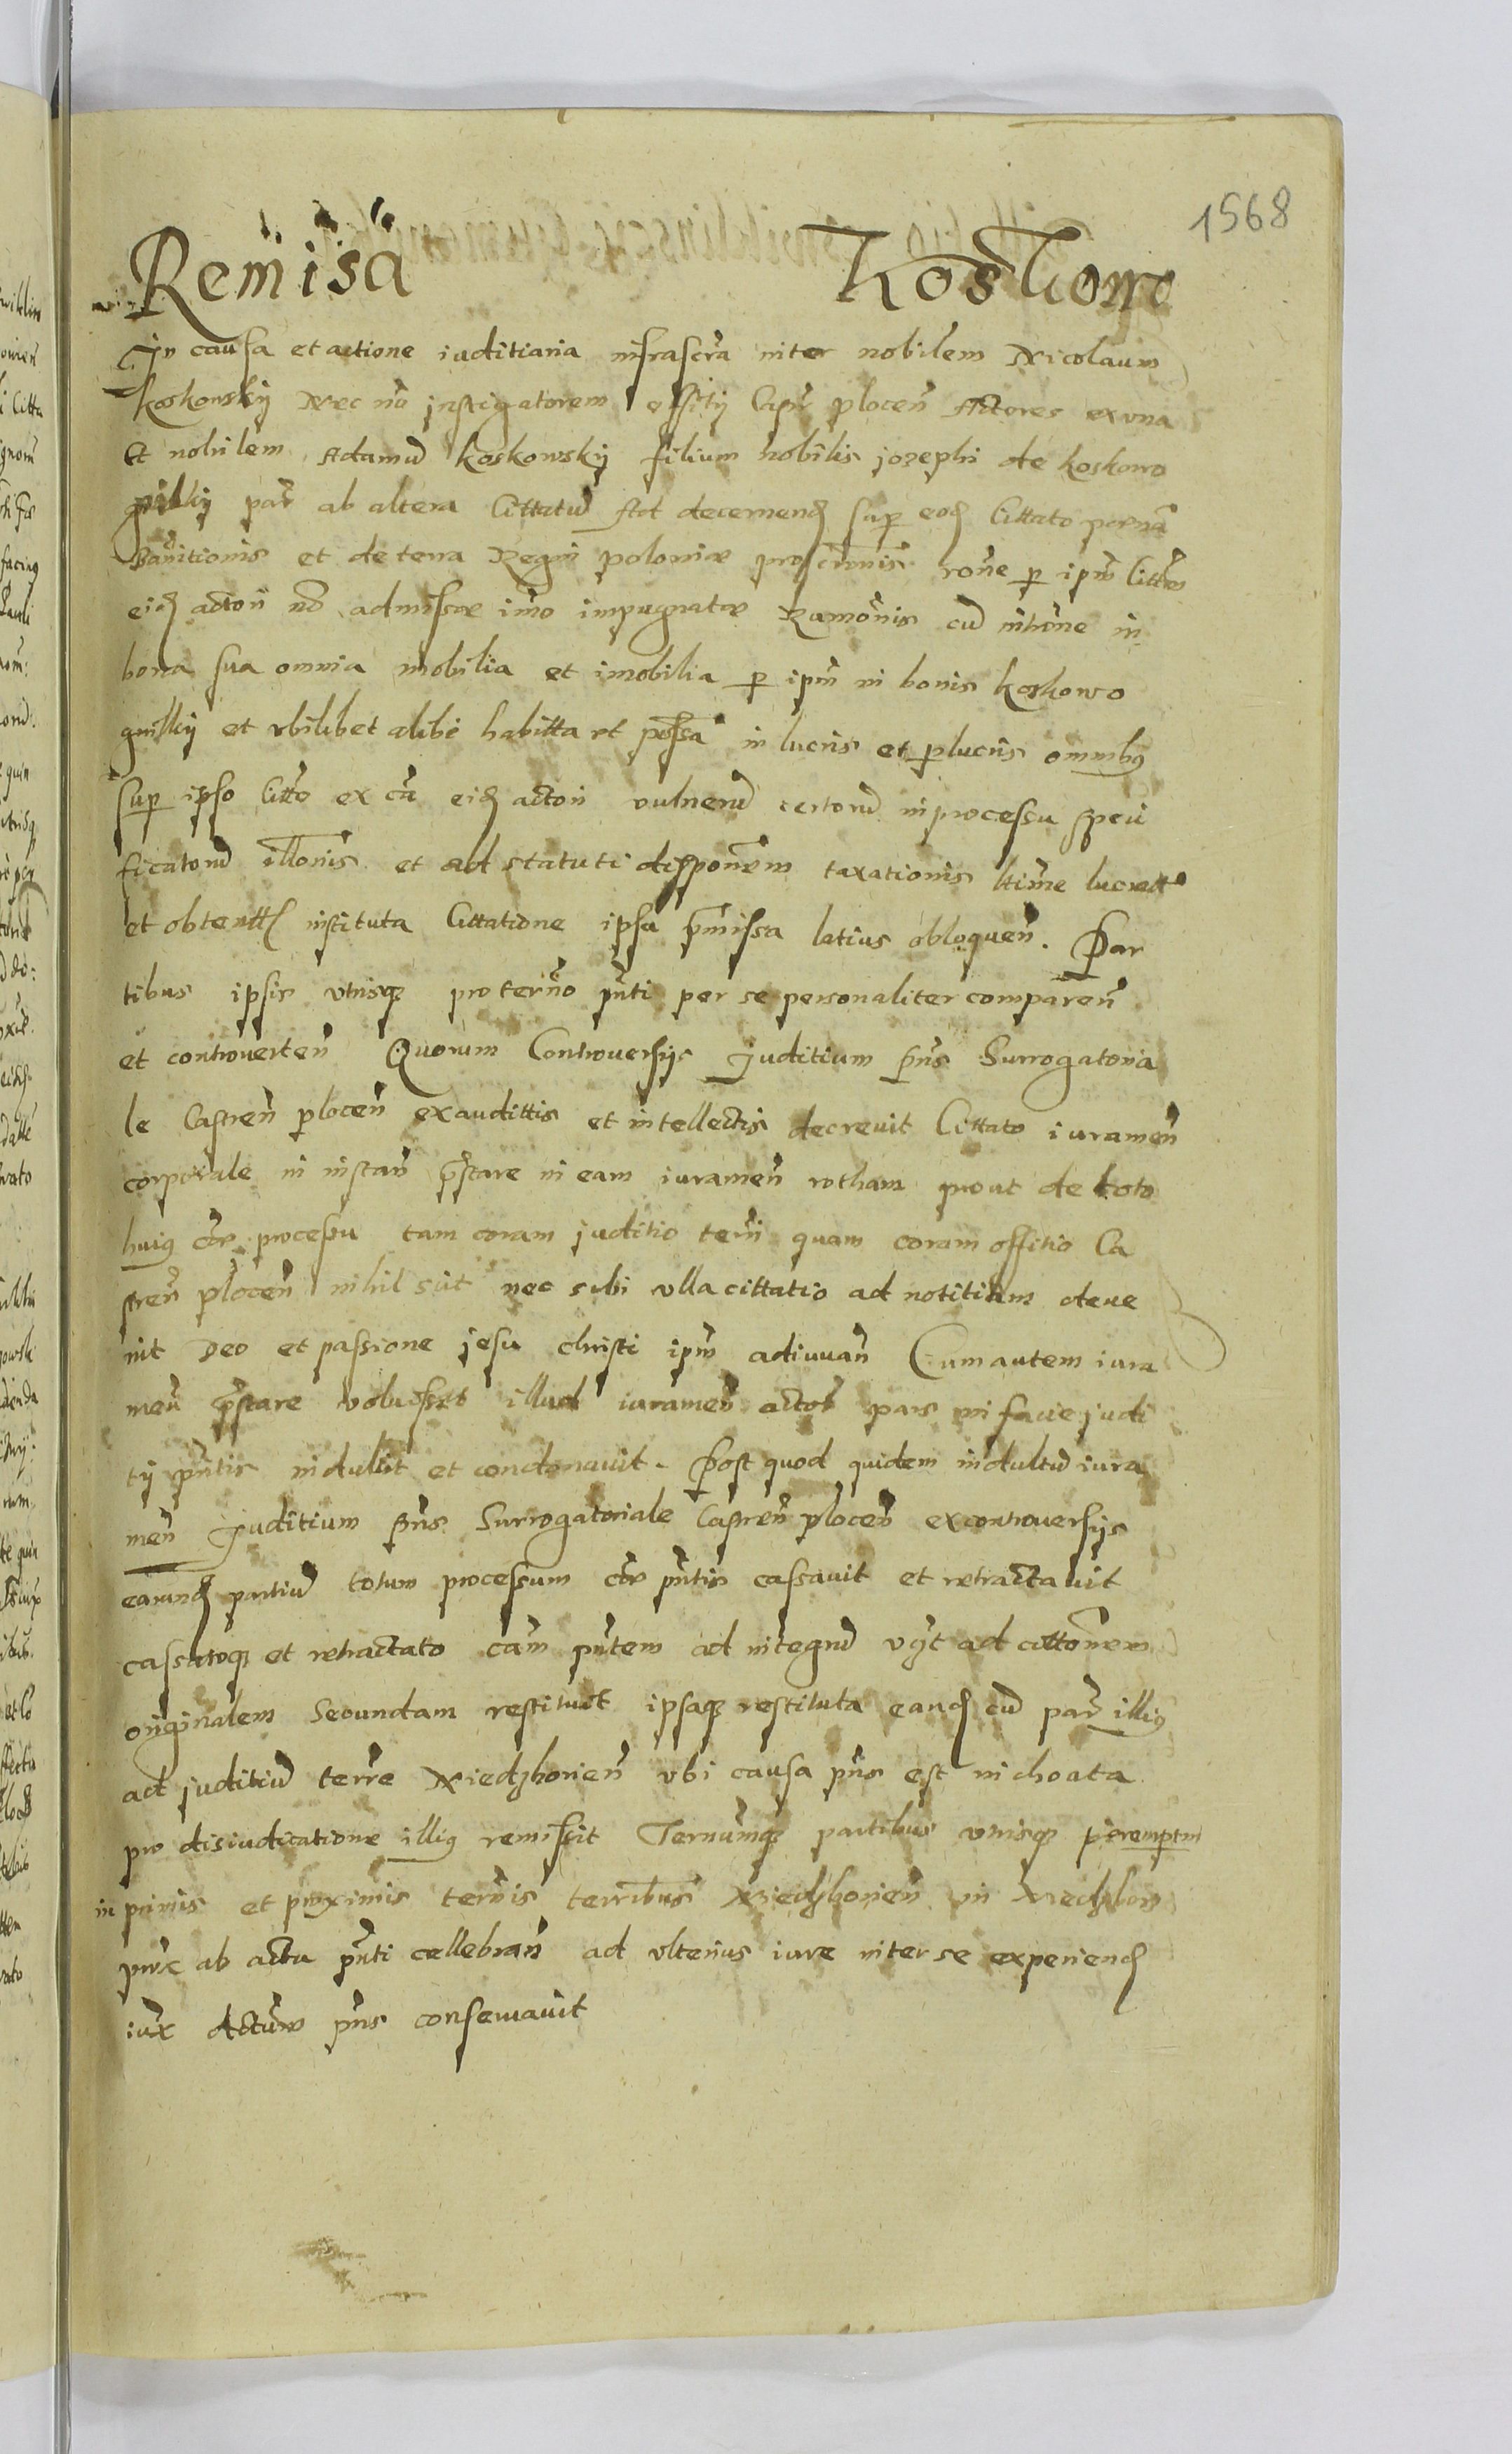 1568
Remisa Koskowo
In causa et actione iuditiaria infrascra inter nobilem Nicolaum
Koskowsky Nec no instigatorem offity Castr plocen Actores ex una
Et nobilem Adamu Koskowsky filium nobilis josephi de Koskowo
par ab altera Cittatu Ad decernend sup eod Cittato pœna
Banitionis et de terra Regni poloniæ rone p ipm Cittm
eid actori no admissæ imo impugnatæ Rumonis cu intrōne in
bona sua omnia mobilia et imobilia p ipm in bonis Koskowo
et ubilibet alibi habitta et possa in lucris et plucris omnibq
sup ipso Citto ex ca eid actori vulneru certoru in processu speci
ficatoru illonis et ad statuti disponem taxationis ltime
et instituta Cittatione ipsa pmissa latius obloquen. Par
tibus ipsis utrisq pro termo pnti per se personaliter comparen
et controverten Quorum Controversijs Juditium pns Surrogatoria
le Castren plocen exaudittis et intellectis decrevit Cittato iuramen
corporale in instan pstare in eam iuramen rotham prout de toto
huiq cæ processu tam coram juditio terri quam coram offitio Ca
stren plocen nihil scit nec sibi ulla cittatio ad notitiam deve
nit Deo et passione jesu christi ipm adiuvan Cum autem iura
men pstare voluisset illud iuramen actor pars in facie judi
ty pntis indulsit et condonavit. Post quod quidem indultu iura
men Juditium pns Surrogatoriale Castren plocen ex controversijs
earund partiu totum processum cæ pntis cassavit et retractavit
cassatoq et retractato cam pntem ad integru vzt ad cittonem
originalem Secundam restituit ipsaq restituta eand cu par illiq
ad juditiu terre Niedzborien ubi causa pns est inchoata
pro disiudicatione illiq remissit Terminuq partibus utrisq peremptm
in primis et proximis termis terribus Niedzborien in Niedzborz
ab actu pnti cellebran ad ulterius iure inter se experiend
iux pns conservavit